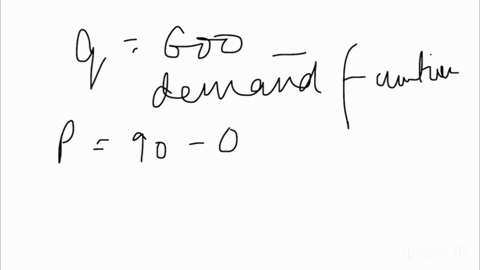 q = 600 —
demand function
P = 90 - 0